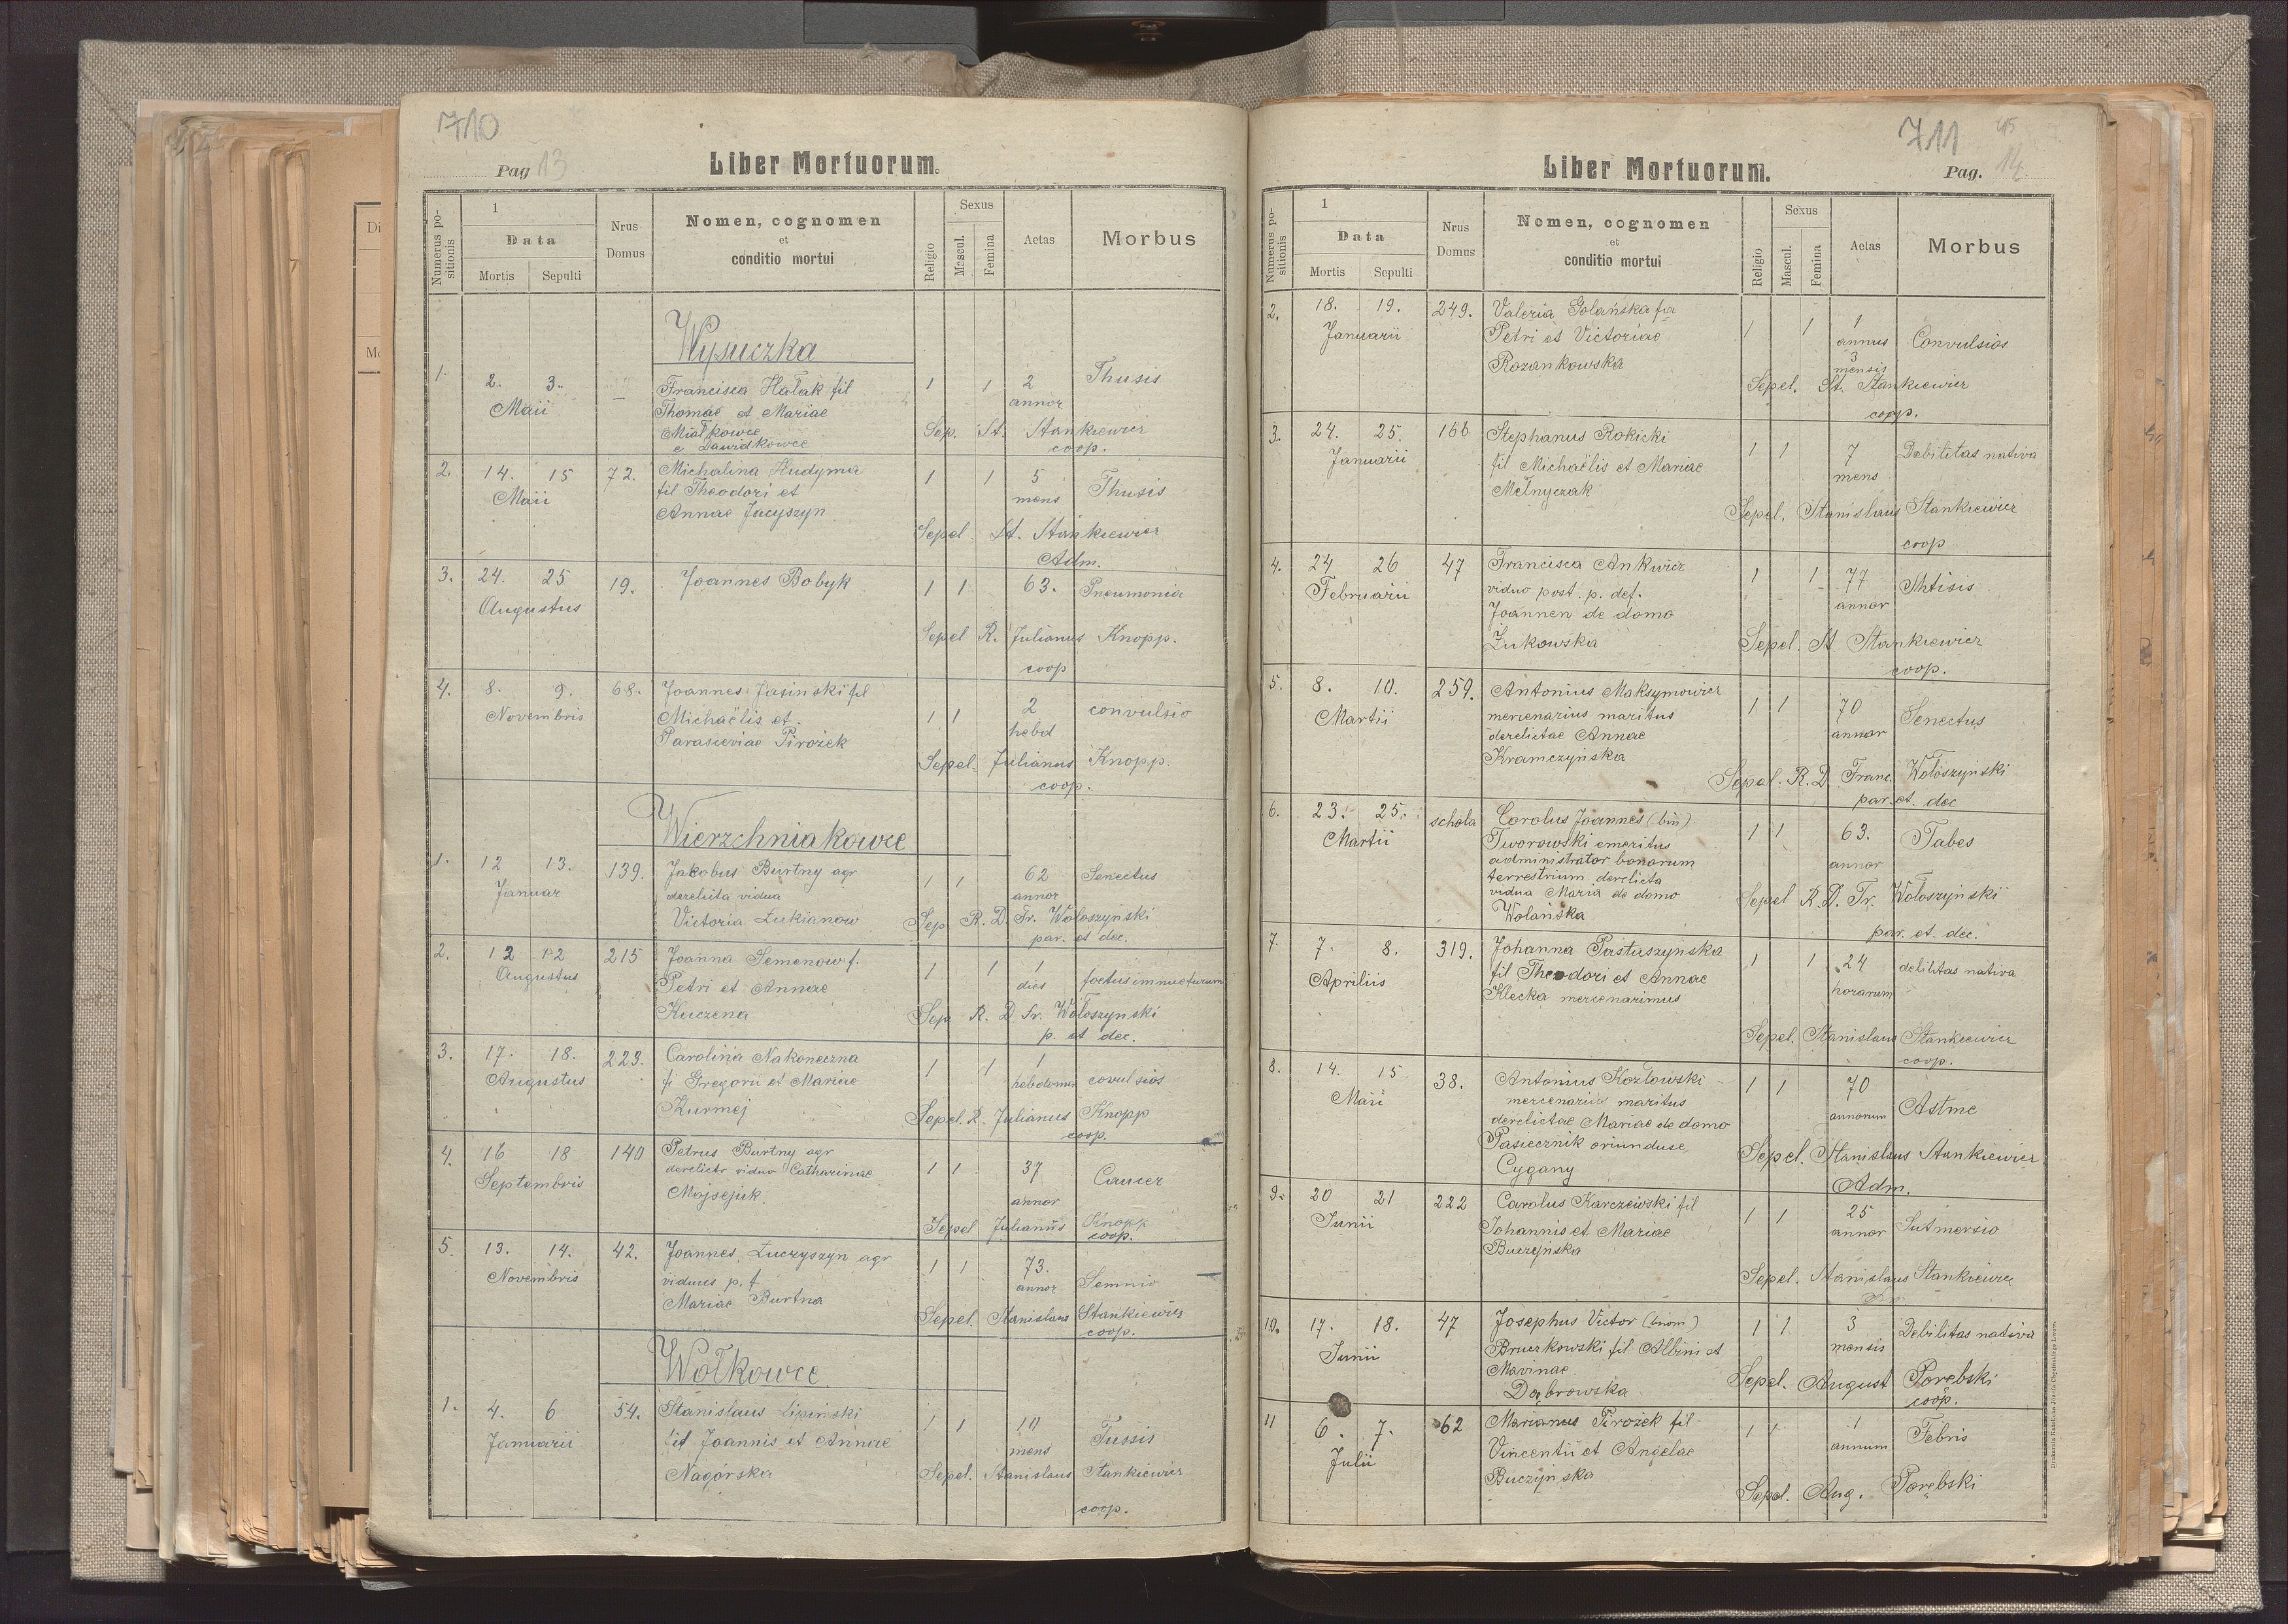 710
Pag 13
Liber Mortuorum.
Numerus positionis
1
Data
Mortis Sepulti
Nrus Domus
Nomen, cognomen
et
conditio mortui
Religio
Sexus
Mascul. Femina
Aetas
Morbus
Wysuczka
1. 2. 3. — Francisca Hałak fil 1 1 2 Thusis
Maii Thomae et Mariae annor
Miałkowce
Sep. St. Stankiewicz
coop.
2. 14. 15 72. Michalina Hudyma 1 1 5 Thusis
Maii fil Theodori et mens
Annae Jacyszyn
Sepel. St. Stankiewicz
Adm.
3. 24. 25 19. Joannes Bobyk 1 1 63. Pneumonia
Augustus
Sepel R. Julianus Knopp.
coop
4. 8. 9. 68. Joannes Jasinski fil 1 1 2 convulsio
Novembris Michaëlis et hebd
Parasceviae Pirożek
Sepel. Julianus Knopp.
coop.
Wierzchniakowce
1. 12 13. 139. Jakobus Burtny agr 1 1 62 Senectus
Januar derelicta vidua annor
Victoria Łukianow Sep R. D. Fr. Wołoszyński
par. et dec.
2. 12 12 215 Joanna Semenow f. 1 1 1 foetus immueturum
Augustus Petri et Annae dies
Kuczena Sep R. D Fr. Wołoszynski
p. et dec.
3. 17. 18. 223. Carolina Nakoneczna 1 1 1 covulsios
Augustus fi Gregorii et Mariae hebdoma
Kurmej Sepel. R. Julianus Knopp
coop.
4. 16 18 140 Petrus Burtny agr 1 1 37 Cancer
Septembris derelictr viduo Catharinae annor
Mojsejuk.
Sepel Julianus Knopp
coop.
5. 13. 14. 42. Joannes Łuczyszyn agr 1 1 73. Semnio
Novembris viduus p. f annor
Mariae Burtna
Sepel. Stanislaus Stankiewicz
coop.
Wołkowce
1. 4. 6 54. Stanislaus Lipinski 1 1 10 Tussis
Januarii fil Joannis et Annae mens
Nagórska Sepel. Stanislaus Stankiewicz
coop.
711
Liber Mortuorum.
Pag. 14
Numerus positionis
1
Data
Mortis Sepulti
Nrus Domus
Nomen, cognomen
et
conditio mortui
Religio
Sexus
Mascul. Femina
Aetas
Morbus
2. 18. 19. 249. Valeria Golańska fia 1 1 1 Convulsios
Januarii Petri et Victoriae annus
Rozankowska 3 mensis
Sepel. St. Stankiewicz
coop.
3. 24. 25. 166 Stephanus Rokicki 1 1 7 Debilitas nativa
Januarii fil Michaëlis et Mariae mens
Melnyczak
Sepel. Stanislaus Stankiewicz
coop
4. 24 26 47 Francisca Ankwicz 1 1 77 Shtisis
Februarii viduo post. p. def. annor
Joannen de domo
Żukowska Sepel. St Stankiewicz
coop.
5. 8. 10. 259. Antonius Maksymowicz 1 1 70 Senectus
Martii mercenarius maritus annor
derelictae Annae
Kramczyńska
Sepel. R. D. Franc. Wołoszyński
par. et. dec
6. 23. 25. schola Carolus Joannes (bin) 1 1 63. Tabes
Martii Tworowski emeritus annor
administrator bonarum
terrestrium derelicta
vidua Maria de domo
Wolańska
Sepel R. D. Fr. Wołoszyńskii
par. et. dec.
7. 7. 8. 319. Johanna Pastuszyńska 1 1 24 delilitas nativa
Apriliis fil Theodori et Annae horarum
Klecka mercenarimus
Sepel. Stanislaus Stankiewicz
coop.
8. 14. 15 38. Antonius Kozłowski 1 1 70 Astme
Maii mercenarius maritus annorum
derelictae Mariae de domo
Pasiecznik oriunduse
Cygany
Sepel. Stanislaus Stankiewicz
Adm.
9. 20 21 222 Carolus Karczewski fil 1 1 25 Sutmersio
Junii Johannis et Mariae annor
Buczyńska
Sepel. Stanislaus Stankiewicz
10. 17. 18. 47 Josephus Victor (binom) 1 1 3 Debilitas nativa
Junii Bruczkowski fil Albini et mensis
Marinae
Dąbrowska
Sepel. August Porębski
coop.
11 6. 7. 62 Marianus Pirożek fil 1 1 1 Febris
Julii Vincentii et Angelae annum
Buczynska
Sepel. Aug. Porębski